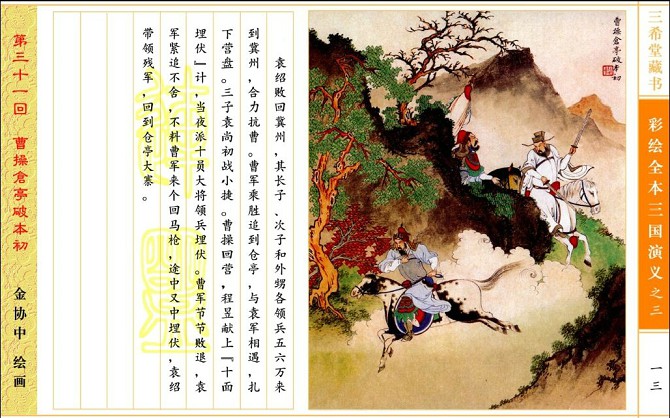 三希堂藏书
彩绘全本三国演义之三
一三
曹操倉亭破本初
袁绍败回冀州，其长子、次子和外甥各领兵五六万来
到冀州，合力抗曹。曹军乘胜追到仓亭，与袁军相遇，扎
下营盘。三子袁尚初战小捷。曹操回营，程昱献上『十面
埋伏』计，当夜派十员大将领兵埋伏。曹军节节败退，袁
军紧追不舍，不料曹军来个回马枪，途中又中埋伏，袁绍
带领残军，回到仓亭大寨。
第三十一回 曹操倉亭破本初
金协中 绘画